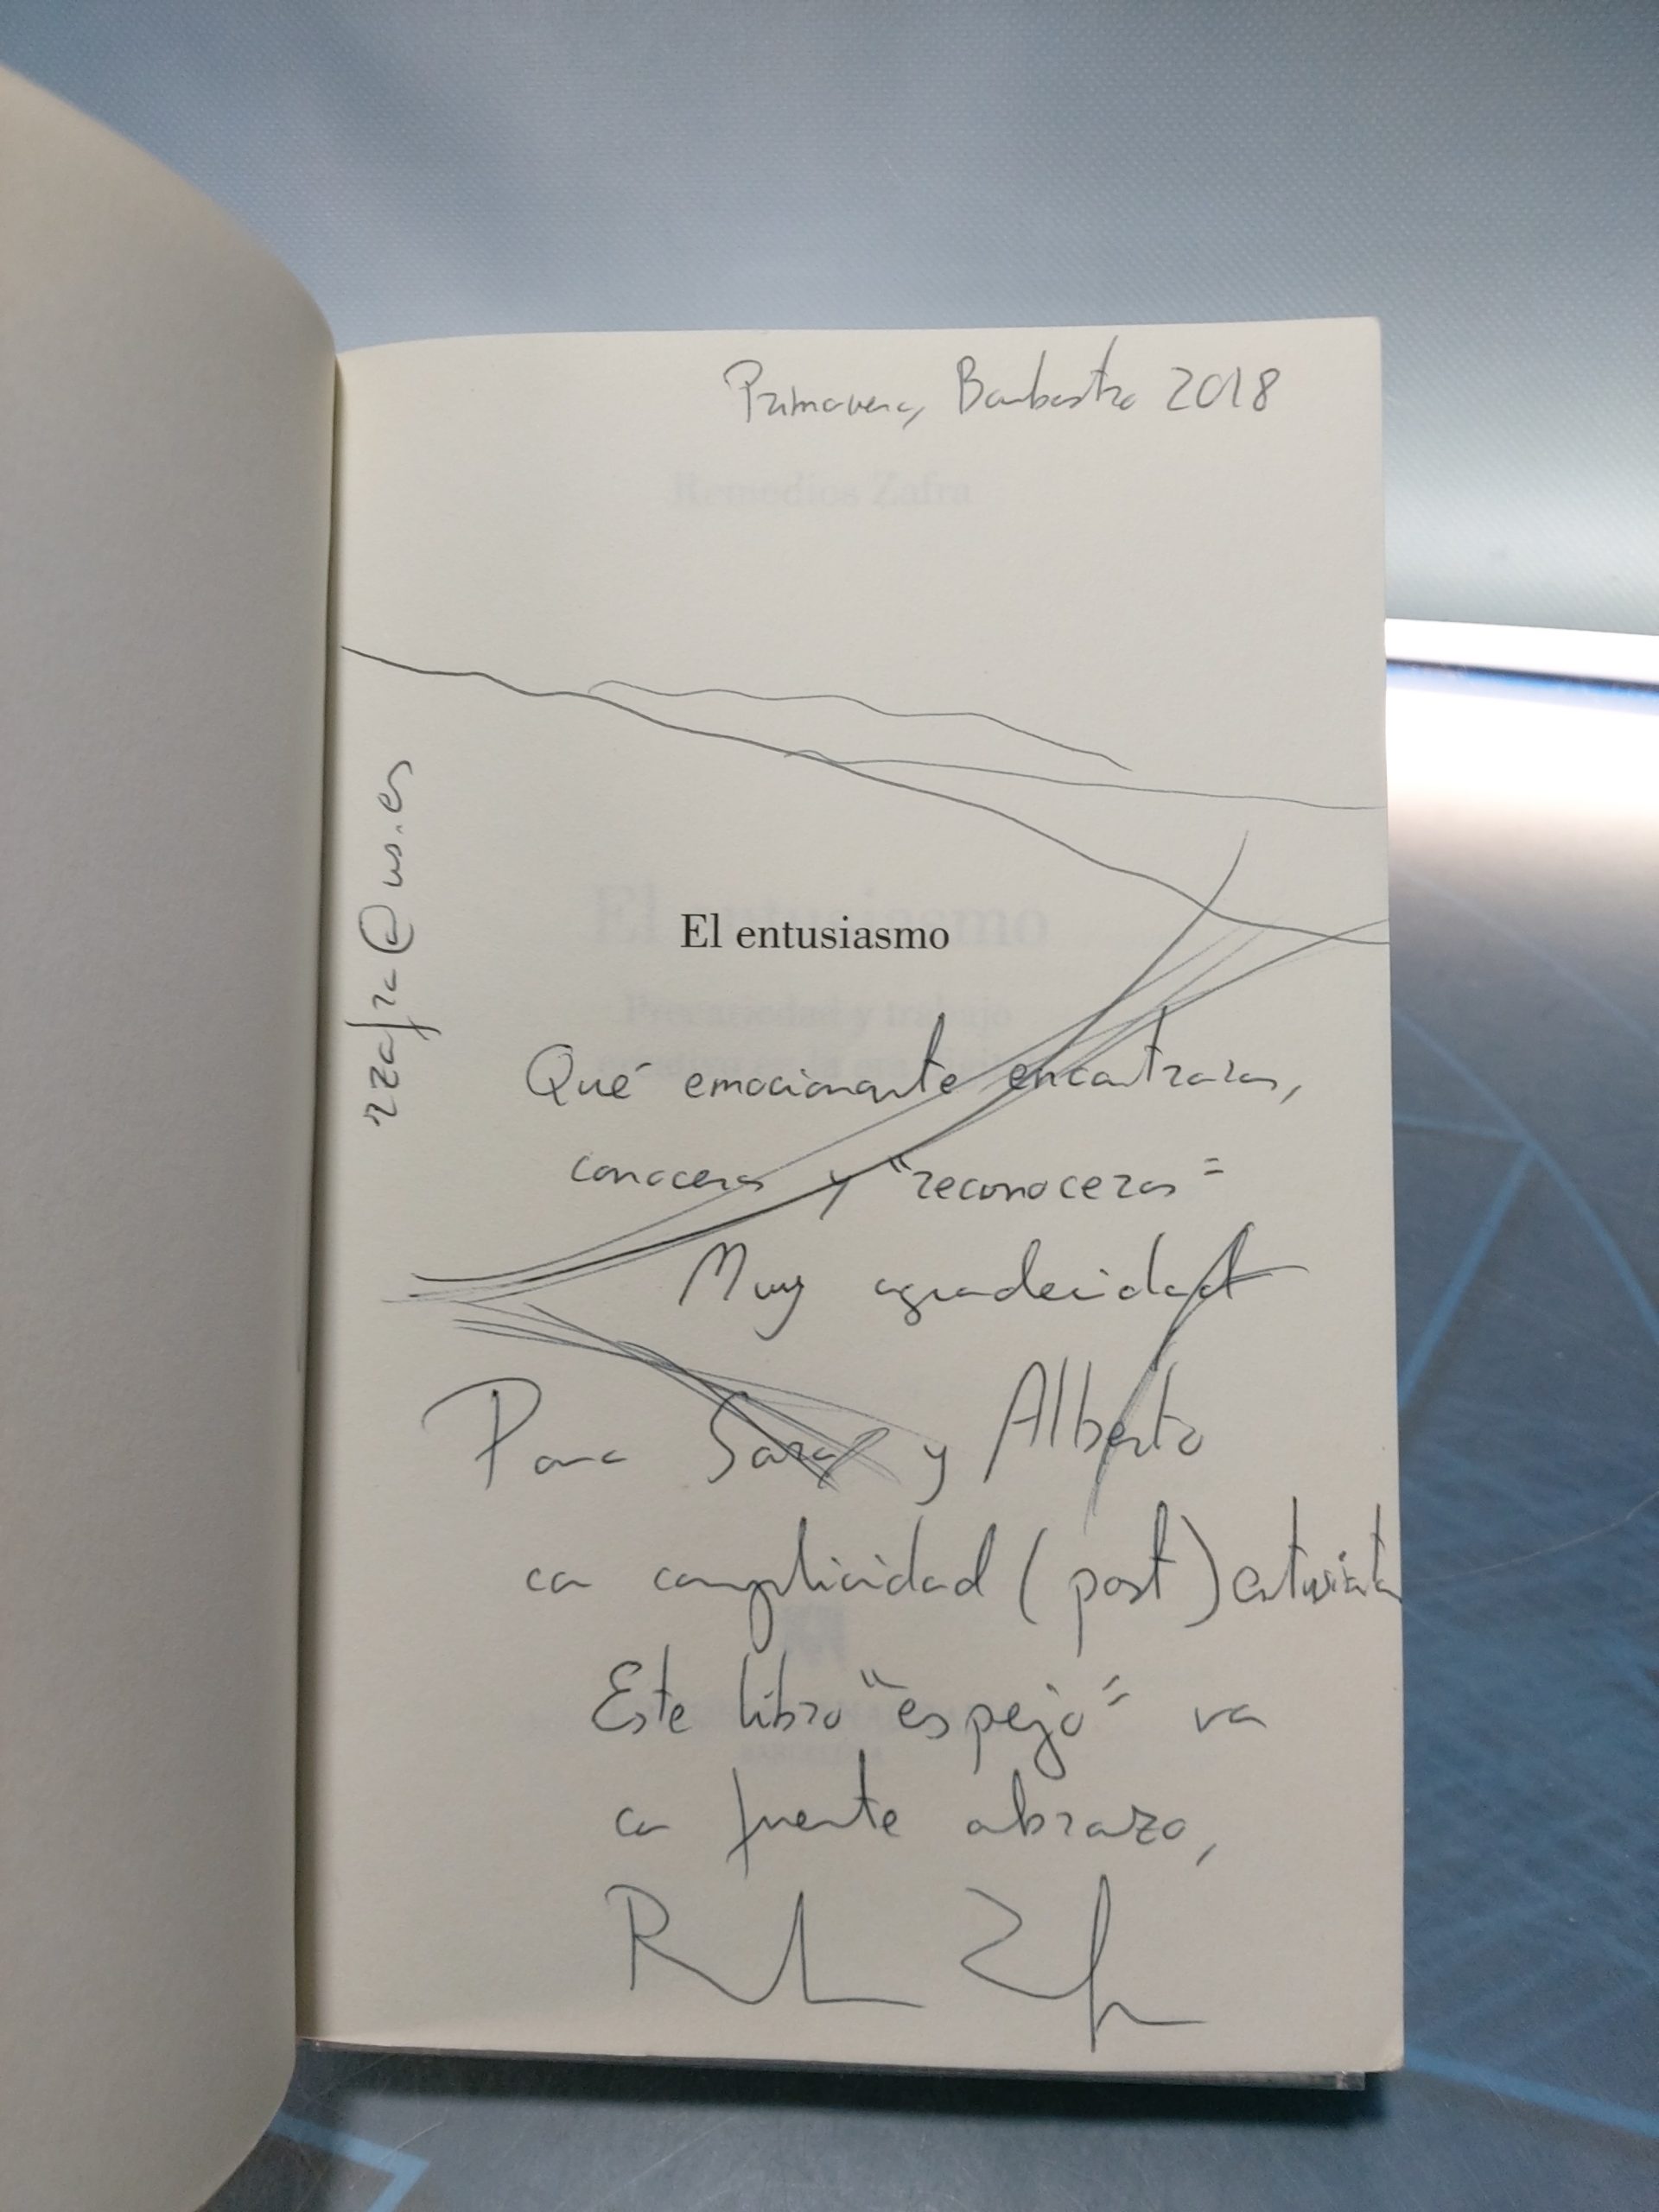 Primavera, Barbastro 2018
Remedios Zafra
rzafra@us.es
El entusiasmo
El entusiasmo
Precariedad y trabajo
Qué emocionante encontraros,
conoceros y "reconoceros"
Muy agradecida
Para Sara y Alberto
con complicidad (post) entusiasta
Este libro "espejo" va
con fuerte abrazo,